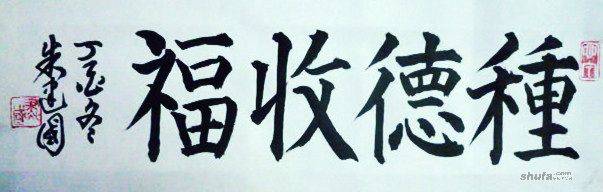 種德收福
丁酉冬
朱建國
shufa.com